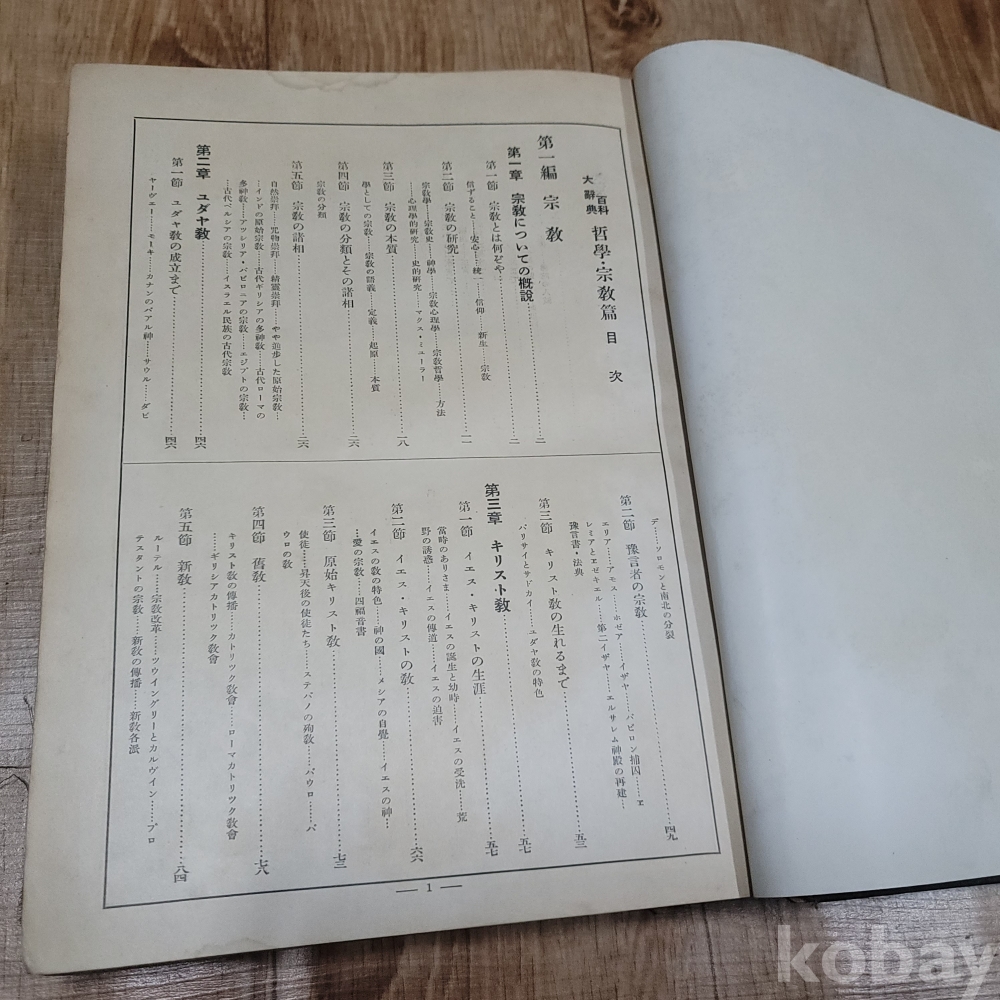 百科
大辭典 哲學・宗教篇 目次
第一編 宗教
第一章 宗教についての概説……二
第一節 宗教とは何ぞや……二
信ずること……安心……統一……信仰……新生……宗教
第二節 宗教の研究……一一
宗教學……宗教史……神學……宗教心理學……宗教哲學……方法
……心理學的研究……史的研究……マクス・ミューラー
第三節 宗教の本質……一八
學としての宗教……宗教の語義……定義……起原……本質
第四節 宗教の分類とその諸相……二六
宗教の分類
第五節 宗教の諸相……二六
自然崇拜……咒物崇拜……精靈崇拜……やや進歩した原始宗教…
…インドの原始宗教…古代ギリシアの多神教……古代ローマの
多神教……アッシリア・バビロニアの宗教……エジプトの宗教…
…古代ペルシアの宗教……イスラエル民族の古代宗教
第二章 ユダヤ教……四六
第一節 ユダヤ教の成立まで……四六
ヤーヴェー……モーキ……カナンのバアル神……サウル……ダビ
デ……ソロモンと南北の分裂
第二節 豫言者の宗教……四九
エリア……アモス……ホゼア……イザヤ……バビロン捕囚……エ
レミアとエゼキエル……第二イザヤ……エルサレム神殿の再建…
豫言書・法典
第三節 キリスト教の生れるまで……五三
パリサイとサドカイ……ユダヤ教の特色
第三章 キリスト教……五七
第一節 イエス・キリストの生涯……五七
當時のありさま……イエスの誕生と幼時……イエスの受洗……荒
野の誘惑……イエスの傳道……イエスの迫害
第二節 イエス・キリストの教……六六
イエスの教の特色……神の國……メシアの自覺……イエスの神…
…愛の宗教……四福音書
第三節 原始キリスト教……七三
使徒……昇天後の使徒たち……ステパノの殉教……パウロ……パ
ウロの教
第四節 舊教……七八
キリスト教の傳播……カトリック教會……ローマカトリツク教會
……ギリシアカトリツク教會
第五節 新教……八四
ルーテル……宗教改革……ツウイングリーとカルヴイン……プロ
テスタントの宗教……新教の傳播……新教各派
— 1 —
kobay